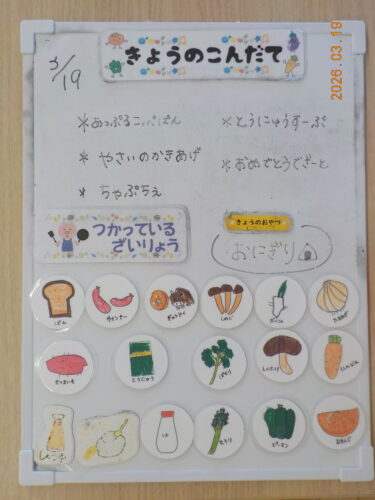 2026.03.19
きょうのこんだて
3/19
*あっぷるこっぺぱん
*とうにゅうすーぷ
*やさいのかきあげ
*おめでとうでざーと
*ちゃぷちぇ
つかっている
ざいりょう
きょうのおやつ
おにぎり
ぱん
ウインナー
ぎゅうにく
しめじ
だいこん
たまねぎ
さつまいも
とうにゅう
ぱせり
しいたけ
にんじん
しお
せろり
ピーマン
おれんじ